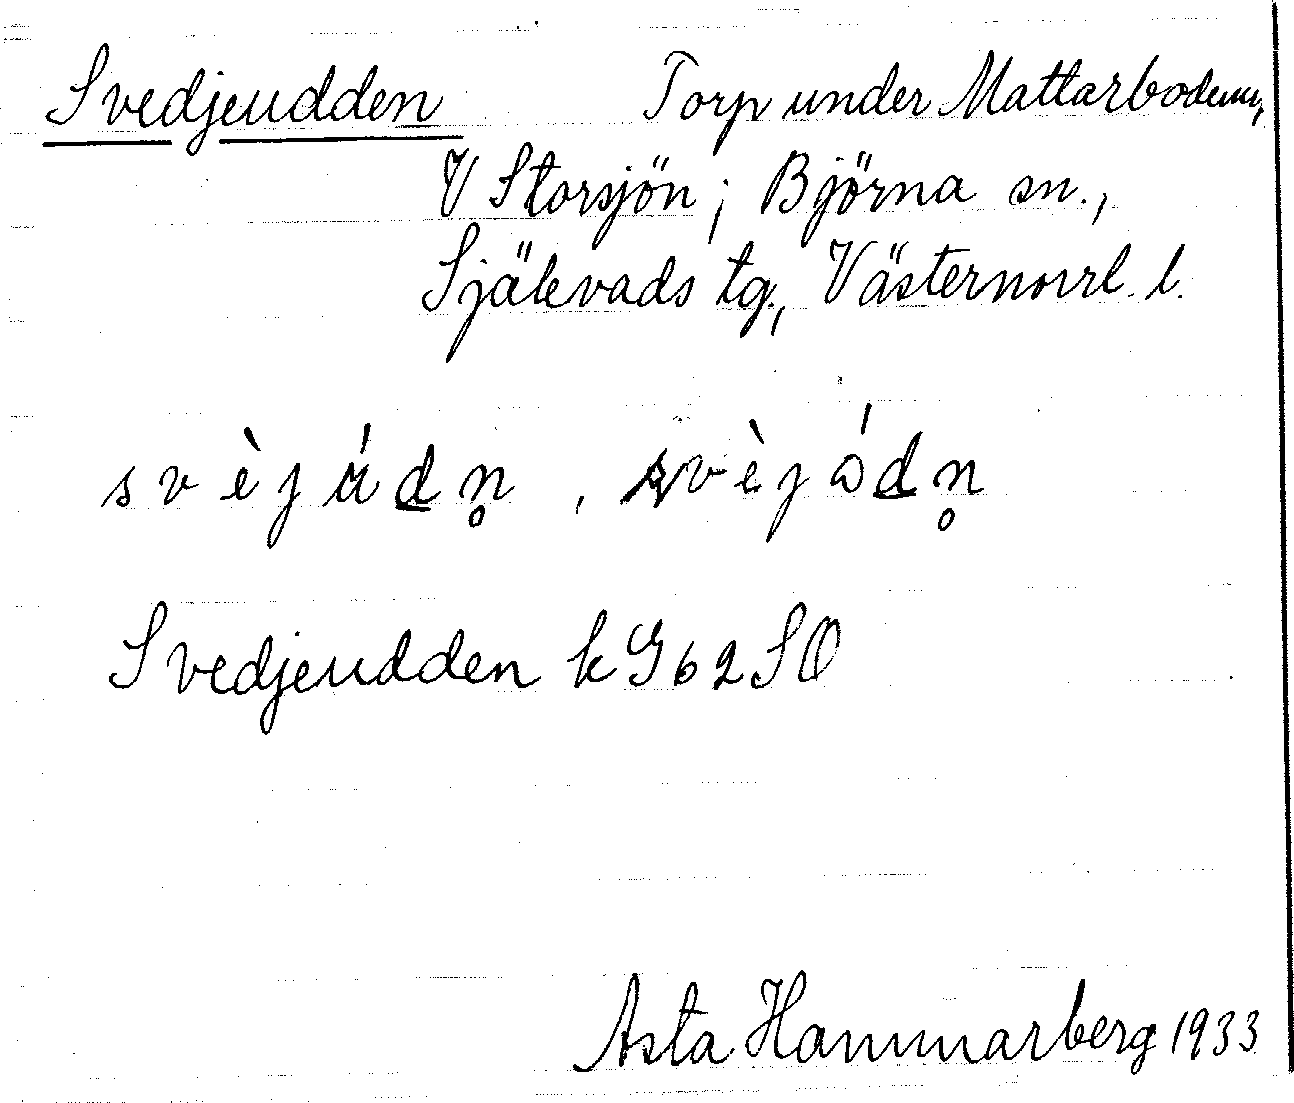 Svedjeudden Torp under Mattarbodum,
V Storsjön; Björna sn.,
Själevads tg., Västernorrl. l.
svèjúdn̥, svèjόdn̥
Svedjeudden kG62SO
Asta Hammarberg 1933